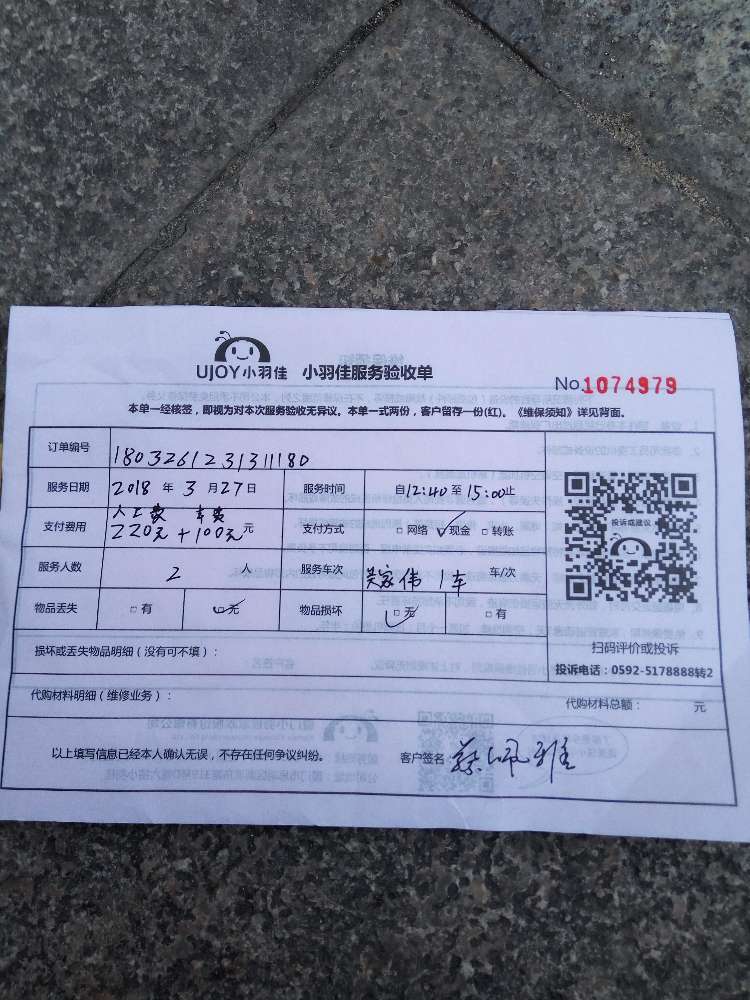 UJOY小羽佳 小羽佳服务验收单 No.1074979
本单一经核签，即视为对本次服务验收无异议。本单一式两份，客户留存一份(红)。《维保须知》详见背面。
订单编号 180326123131180
服务日期 2018 年 3 月 27 日 服务时间 自12:40至15:00止
人工费 车费
支付费用 220元+100元 元 支付方式 □网络 ☑现金 □转账
投诉或建议
服务人数 2 人 服务车次 吴家伟 1车 车/次
物品丢失 □有 ☑无 物品损坏 ☑无 □有
扫码评价或投诉
损坏或丢失物品明细（没有可不填）：
投诉电话：0592-5178888转2
代购材料明细（维修业务）： 代购材料总额： 元
以上填写信息已经本人确认无误，不存在任何争议纠纷。 客户签名：蔡佩雅